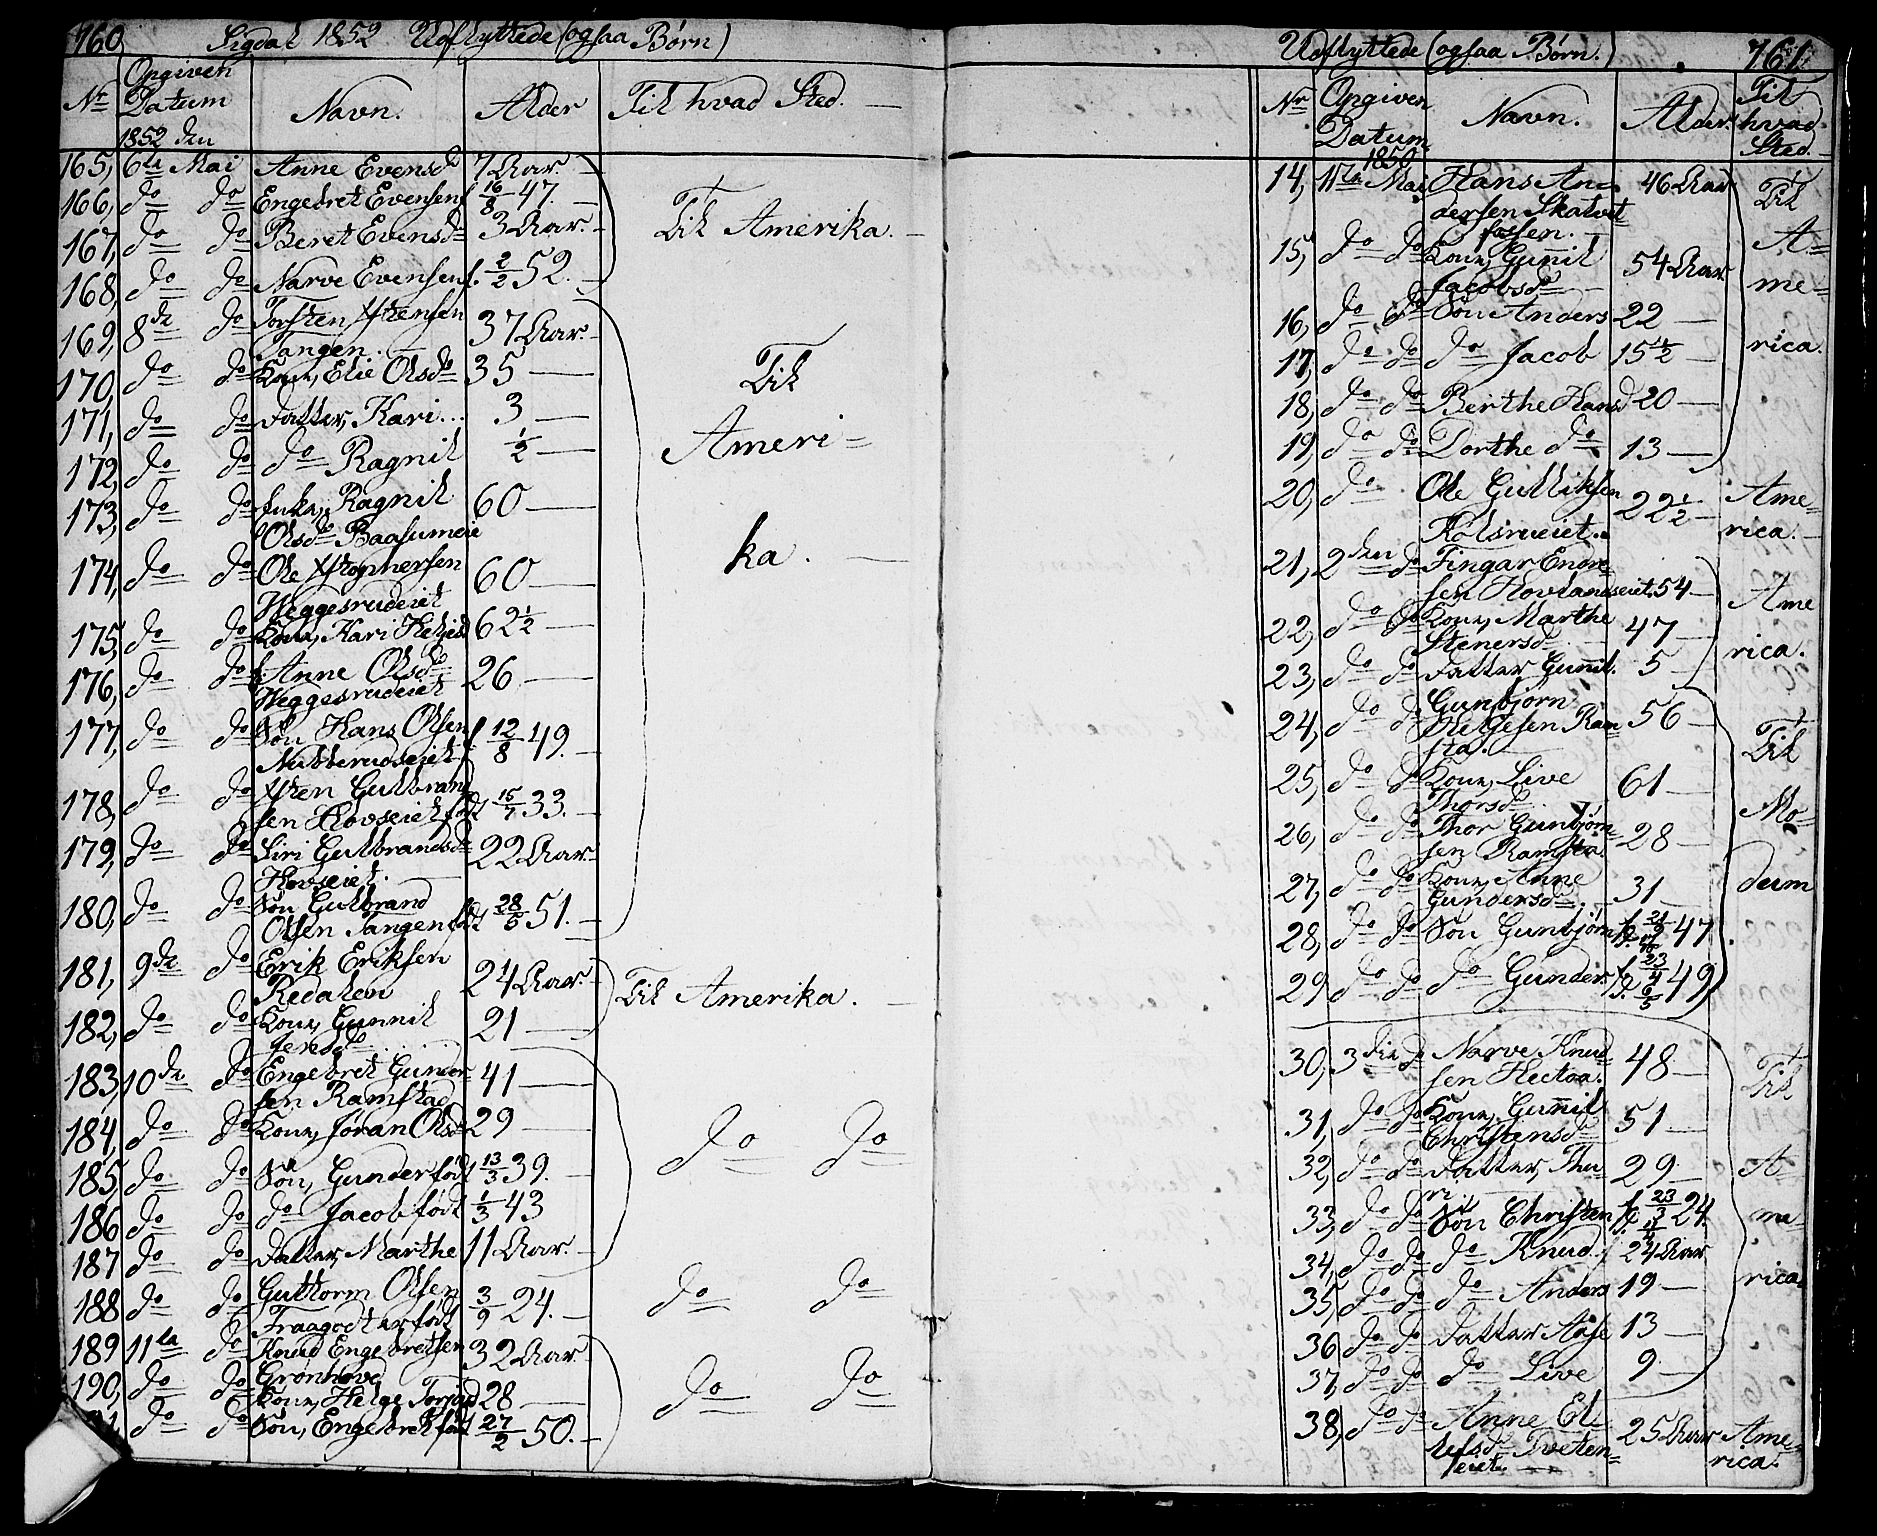 760 Sigdal 1852 Udflyttede (ogsaa Børn)
Nr Opgiven Datum Navn. Alder Til hvad Sted.
1852 den
165, 6te Mai Anne Evensd 7 Aar.
166, do do Engebret Evensen f 16/8 47.
167, do do Beret Evensd 3 Aar. Til Amerika.
168, do do Narve Evensen f. 2/2 52.
169, 8de do Torsten Xstensen 37 Aar.
Tangen
170, do do Kone, Elie Olsd 35
171, do do Datter, Kari 3
172, do do do Ragnil 1/2
173, do do Enke, Ragnil 60
Olsd Baasumeie
174, do do Ole Xstophersen 60
Heggesrudeiet
175, do do Kone, Kari Heljesd 62 1/2
176, do do Anne Olsd 26
Heggesrudeiet
177, do do Søn Hans Olsen f 12/8 49.
Nubberudseiet
178, do do Xsten Gulbrand
sen Hovseiet født 15/7 33.
179, do do Siri Gulbrandsd 22 Aar
Hovseiet.
180, do do Søn Gulbrand
Olsen Tangen født 28/5 51.
Til Ameri=
ka.
181, 9de do Erik Eriksen 24 Aar. Til Amerika.
Redalen
182, do do Kone, Gunnil 21
183, 10de do Engebret Gunder 41
sen Ramstad
184, do do Kone, Jøran Olsd 29 do do
185, do do Søn, Gunder født 13/3 39.
186 do do do Jacob født 1/3 43
187 do do Datter, Marthe 11 Aar.
188 do do Guttorm Olsen do do
Fraagodt er født 3/9 24.
189 11te do Knud Engebretsen 32 Aar.
Grønhovd
190, do do Kone, Helge Torsd 28 do do
do do Søn, Engebret født 27/2 50.
Udflyttede (ogsaa Børn.) 761
Nr Opgiven Datum Navn. Alder. Til hvad Sted.
1850
14, 1ste Mai Hans An= 46 Aar Til
dersen Skatvet
fossen.
15, do do Kone, Gunil 54 Aar A=
Jacobsd me=
16, do do Søn Anders 22
17, do do do Jacob 15 1/2 rica.
18, do do Berthe Hansd 20
19, do do Dorthe do 13
20, do Ole Gulliksen 22 1/2 Ame=
Kolsrueiet. rica.
21, 2den do Fingar Endre=
sen Hovlandseiet. 54 Ame
22, do do Kone, Marthe 47
Stenersd rica.
23, do do Datter Gunnil. 5
24, do do Gunbjørn
Helgesen Ram 56
sta. Til
25, do do Kone, Live 61
Thorsd Mo=
26, do do Thor Gunbjørn
sen Ramsta. 28
27, do do Kone, Anne 31 dum
Gundersd
28, do do Søn Gunbjørn 47
29 do do do Gunder 49
30, 3die do Narve Knud= 48
sen Til
31, do do Kone, Gunnil 51
Christensd
32, do do Datter, Thu 29 A=
ri
33, do do Søn Christen 24. me=
34, do do do Knud 24 Aar
35, do do do Anders 19 rica.
36 do do Datter Aase 13
37, do do do Live 9
38, do do Anne El 25 Aar Ame=
lefsd Tveten=
eiet. rica.